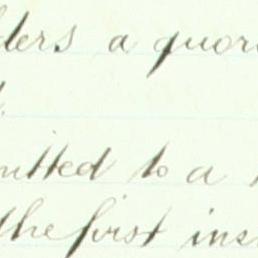 lders a quor
mitted to a
the first ins